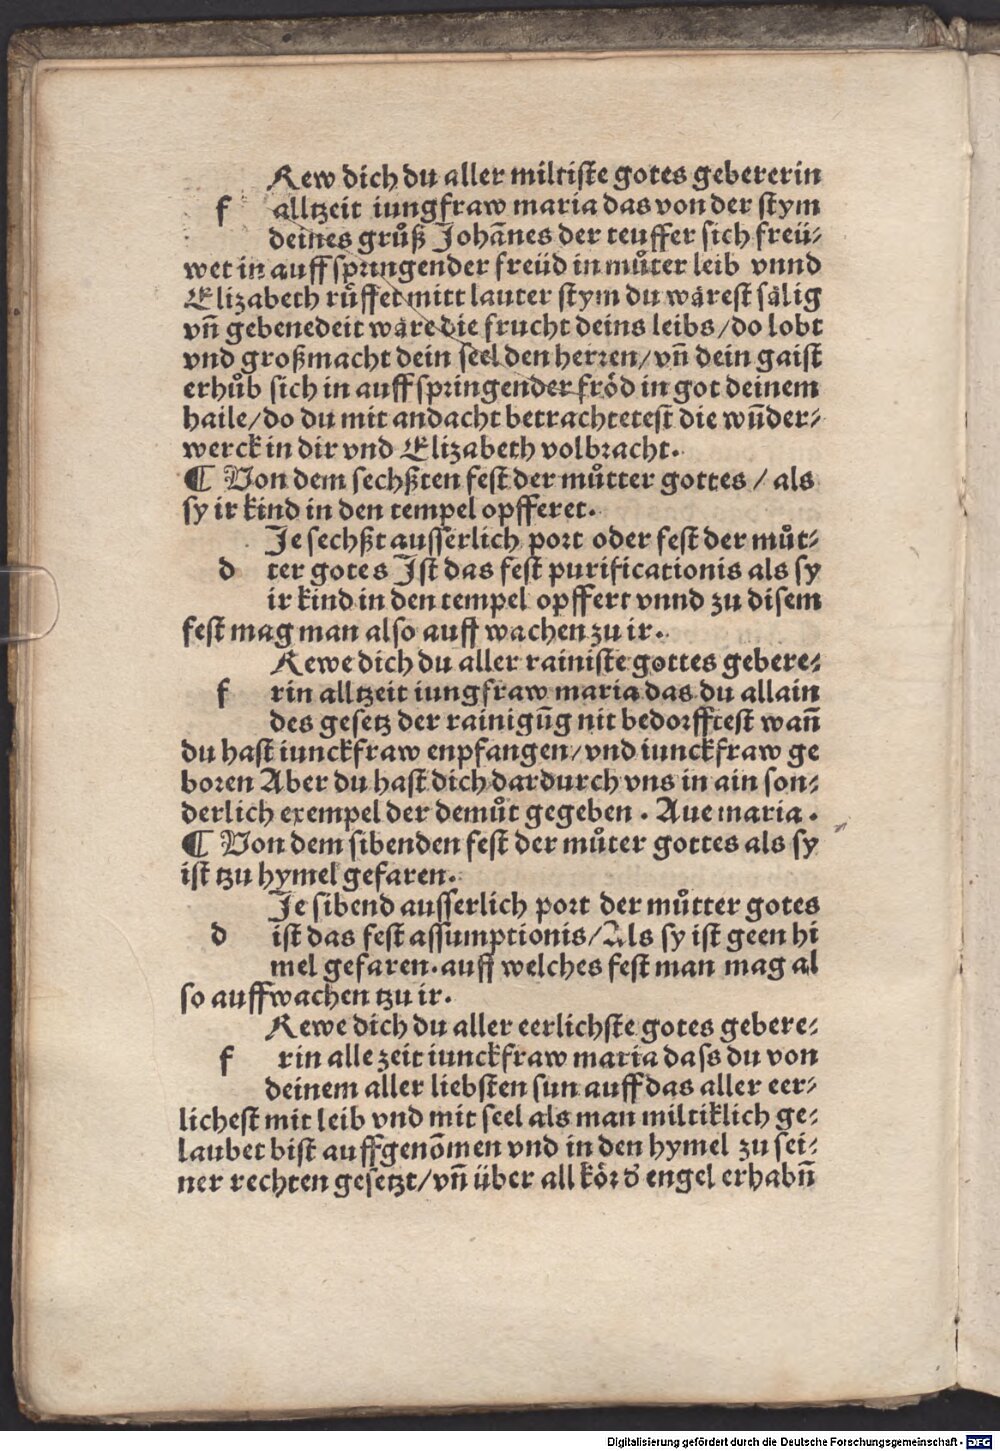 Rew dich du aller miltiste gotes gebererin
f alltzeit iungfraw maria das von der stym
deines gruͦß Johānes der teuffer sich freü⸗
wet in auffspringender freüd in muͦter leib vnnd
Elizabeth ruͤffet mitt lauter stym du wärest sälig
vñ gebenedeit wäre die frucht deins leibs/do lobt
vnd großmacht dein seel den herren/vñ dein gaist
erhuͦb sich in auffspringender fröd in got deinem
haile/do du mit andacht betrachtetest die wūder⸗
werck in dir vnd Elizabeth volbracht.
¶ Von dem sechßten fest der muͦtter gottes / als
sy ir kind in den tempel opfferet.
Je sechßt ausserlich port oder fest der muͦt⸗
d ter gotes Ist das fest purificationis als sy
ir kind in den tempel opffert vnnd zu disem
fest mag man also auff wachen zu ir.
Rewe dich du aller rainiste gottes gebere⸗
f rin alltzeit iungfraw maria das du allain
des gesetz der rainigūg nit bedorfftest wañ
du hast iunckfraw enpfangen/vnd iunckfraw ge
boren Aber du hast dich dardurch vns in ain son⸗
derlich exempel der demuͦt gegeben . Aue maria .
¶ Von dem sibenden fest der muͦter gottes als sy
ist tzu hymel gefaren.
Je sibend ausserlich port der muͦtter gotes
d ist das fest assumptionis/Als sy ist geen hi
mel gefaren.auff welches fest man mag al
so auffwachen tzu ir.
Rewe dich du aller eerlichste gotes gebere⸗
f rin alle zeit iunckfraw maria dass du von
deinem aller liebsten sun auff das aller eer⸗
lichest mit leib vnd mit seel als man miltiklich ge⸗
laubet bist auffgenōmen vnd in den hymel zu sei⸗
ner rechten gesetzt/vñ über all kör đ engel erhabñ
Digitalisierung gefördert durch die Deutsche Forschungsgemeinschaft - DFG